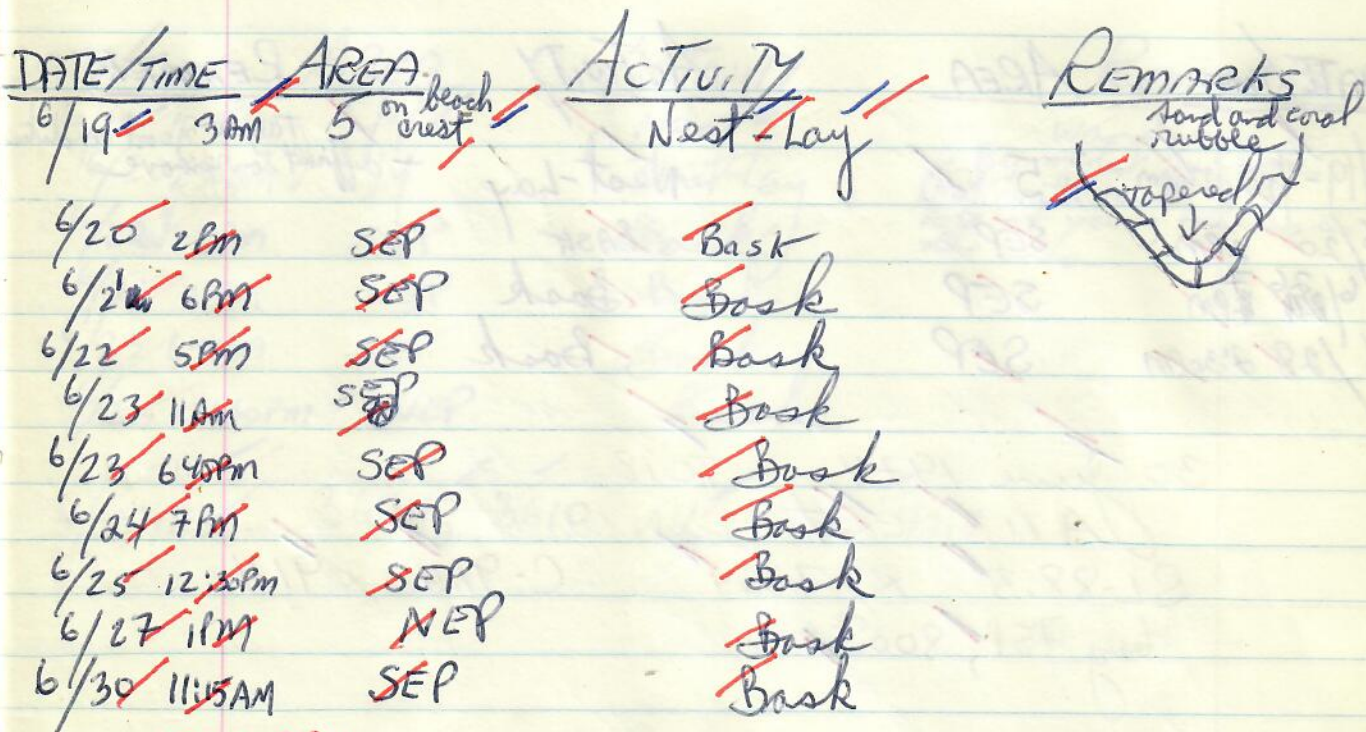 DATE/TIME AREA ACTIVITY REMARKS
6/19 3AM 5 on beach crest Nest-Lay sand and coral rubble
tapered
6/20 2PM SEP Bask
6/21 6PM SEP Bask
6/22 5PM SEP Bask
6/23 11AM SEP Bask
6/23 645PM SEP Bask
6/24 7PM SEP Bask
6/25 12:30PM SEP Bask
6/27 1PM NEP Bask
6/30 11:15AM SEP Bask